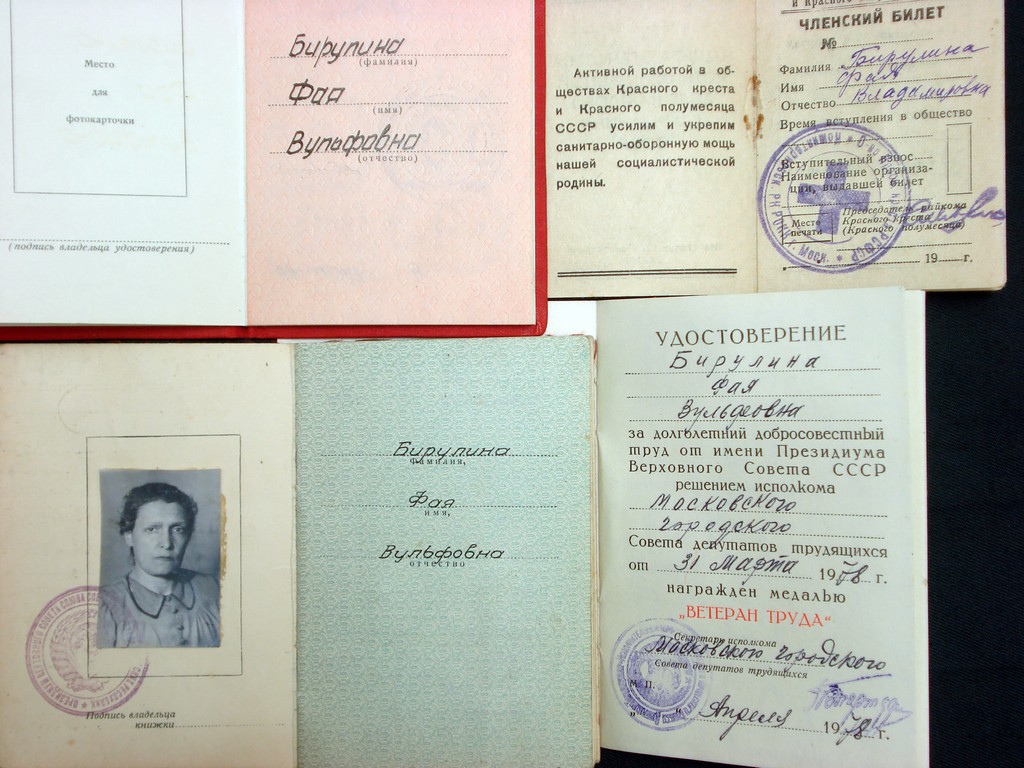 Место
для
фотокарточки
(подпись владельца удостоверения)
Бирулина
(фамилия)
Фая
(имя)
Вульфовна
(отчество)
Активной работой в об-
ществах Красного креста
и Красного полумесяца
СССР усилим и укрепим
санитарно-оборонную мощь
нашей социалистической
родины.
и Красного
ЧЛЕНСКИЙ БИЛЕТ
№
Фамилия Бирулина
Имя Фая
Отчество Владимировна
Время вступления в общество
Вступительный взнос
Наименование организа-
ции, выдавшей билет
Место
печати
Председатель райкома
Красного креста
(Красного полумесяца)
19 г.
Подпись владельца
книжки
Бирулина
фамилия,
Фая
имя,
Вульфовна
отчество
УДОСТОВЕРЕНИЕ
Бирулина
Фая
Вульфовна
за долголетний добросовестный
труд от имени Президиума
Верховного Совета СССР
решением исполкома
Московского
городского
Совета депутатов трудящихся
от 31 Марта 1978 г.
награжден медалью
„ВЕТЕРАН ТРУДА“
Секретарь исполкома
Московского городского
Совета депутатов трудящихся
М. П.
„ “ Апреля 1978 г.